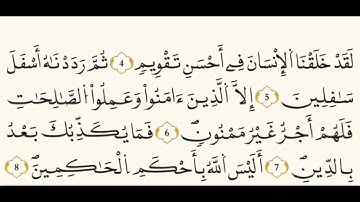 لَقَدْ خَلَقْنَا اَ۬لْإِنسَٰنَ فِےٓ أَحْسَنِ تَقْوِيمٖۖ 4 ثُمَّ رَدَدْنَٰهُ أَسْفَلَ
سَٰفِلِينَ 5 إِلَّا اَ۬لذِينَ ءَامَنُواْ وَعَمِلُواْ اُ۬لصَّٰلِحَٰتِ
فَلَهُمُۥٓ أَجْرٌ غَيْرُ مَمْنُونٖۖ 6 فَمَا يُكَذِّبُكَ بَعْدُ
بِالدِّينِۖ 7 أَلَيْسَ اَ۬للَّهُ بِأَحْكَمِ اِ۬لْحَٰكِمِينَۖ 8